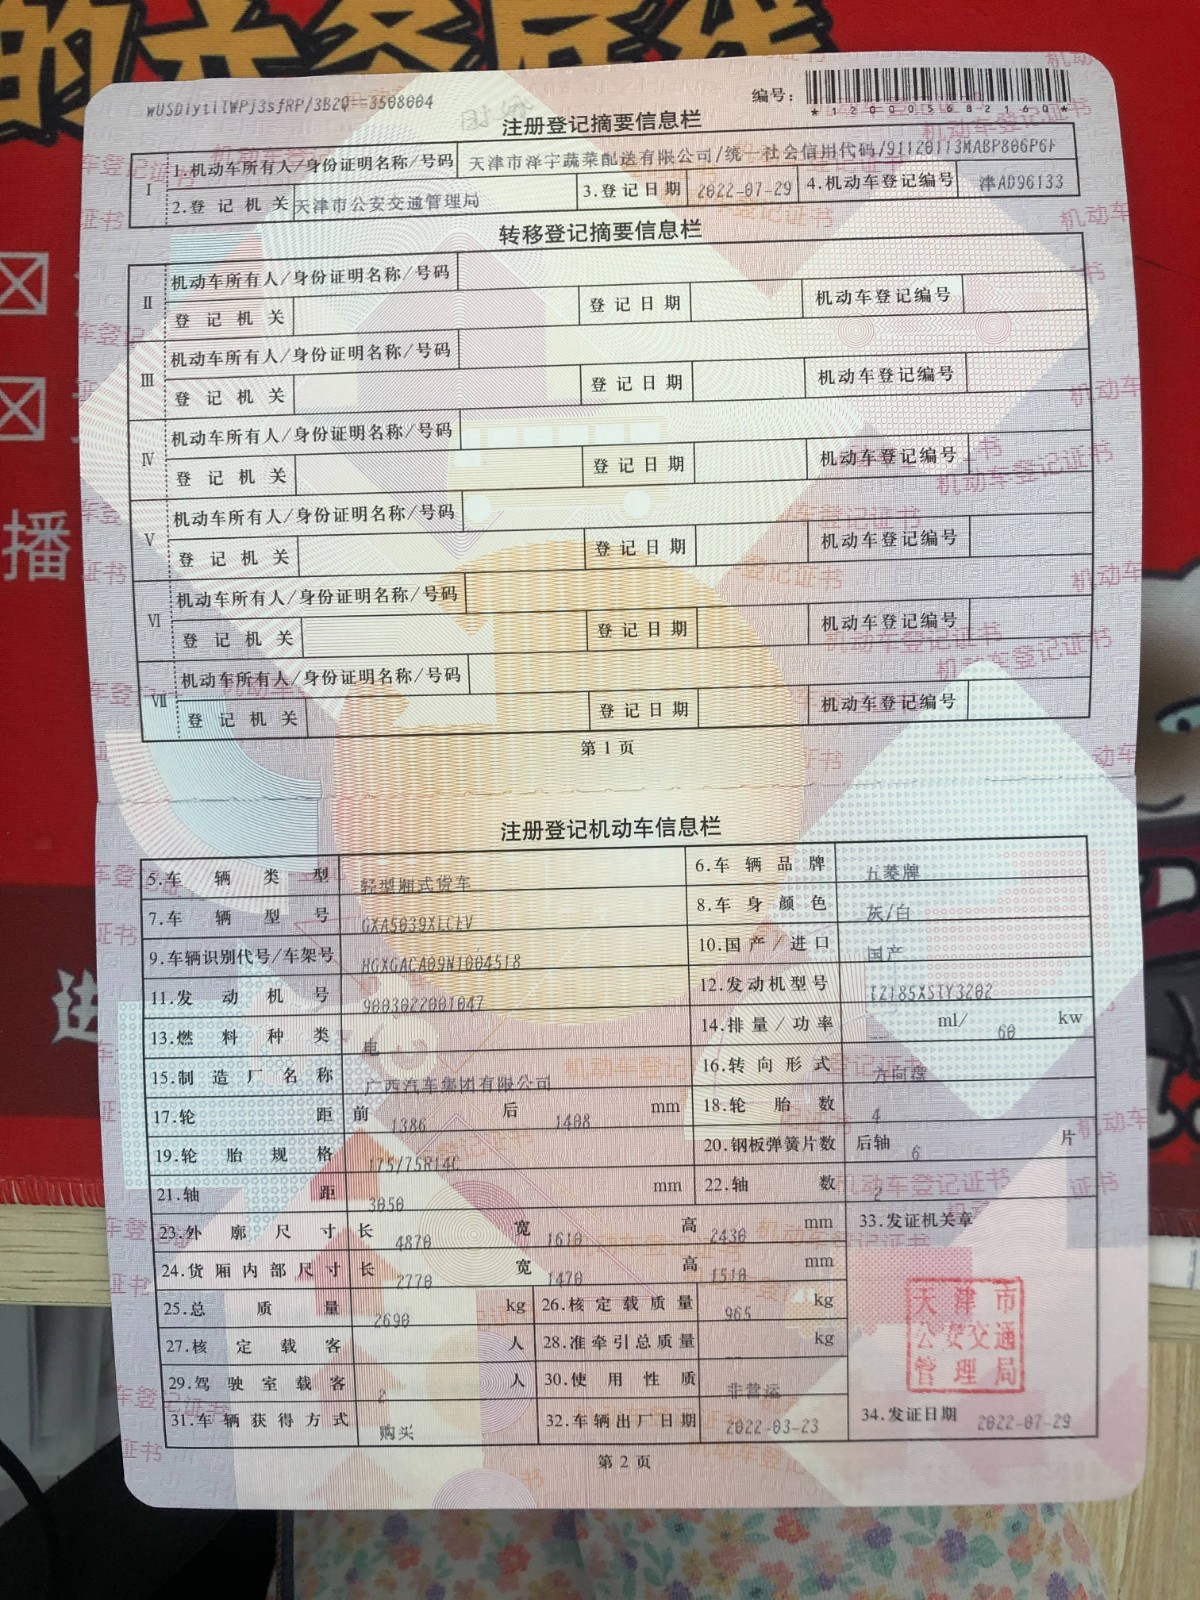 wUSDiytllWPj3sfRP/3B2Q==3508004
编号:
*120005682160*
注册登记摘要信息栏
I
1.机动车所有人/身份证明名称/号码 天津市泽宇蔬菜配送有限公司/统一社会信用代码/91120113MABP806P6F
2.登记机关 天津市公安交通管理局 3.登记日期 2022-07-29 4.机动车登记编号 津AD96133
转移登记摘要信息栏
II
机动车所有人/身份证明名称/号码
登记机关 登记日期 机动车登记编号
III
机动车所有人/身份证明名称/号码
登记机关 登记日期 机动车登记编号
IV
机动车所有人/身份证明名称/号码
登记机关 登记日期 机动车登记编号
V
机动车所有人/身份证明名称/号码
登记机关 登记日期 机动车登记编号
VI
机动车所有人/身份证明名称/号码
登记机关 登记日期 机动车登记编号
VII
机动车所有人/身份证明名称/号码
登记机关 登记日期 机动车登记编号
第1页
注册登记机动车信息栏
5.车辆类型 轻型厢式货车 6.车辆品牌 五菱牌
7.车辆型号 8.车身颜色 灰/白
9.车辆识别代号/车架号 10.国产/进口 国产
11.发动机号 9003022001047 12.发动机型号
13.燃料种类 电 14.排量/功率 ml/ 60 kw
15.制造厂名称 广西汽车集团有限公司 16.转向形式 方向盘
17.轮距 前 1386 后 1408 mm 18.轮胎数 4
19.轮胎规格 175/75R14C 20.钢板弹簧片数 后轴 6 片
21.轴距 3050 mm 22.轴数 2
23.外廓尺寸 长 4870 宽 1610 高 2430 mm 33.发证机关章
24.货厢内部尺寸 长 2770 宽 1470 高 1510 mm
25.总质量 2690 kg 26.核定载质量 965 kg
27.核定载客 人 28.准牵引总质量 -- kg
29.驾驶室载客 2 人 30.使用性质 非营运
31.车辆获得方式 购买 32.车辆出厂日期 2022-03-23 34.发证日期 2022-07-29
天津市
公安交通
管理局
第2页
播